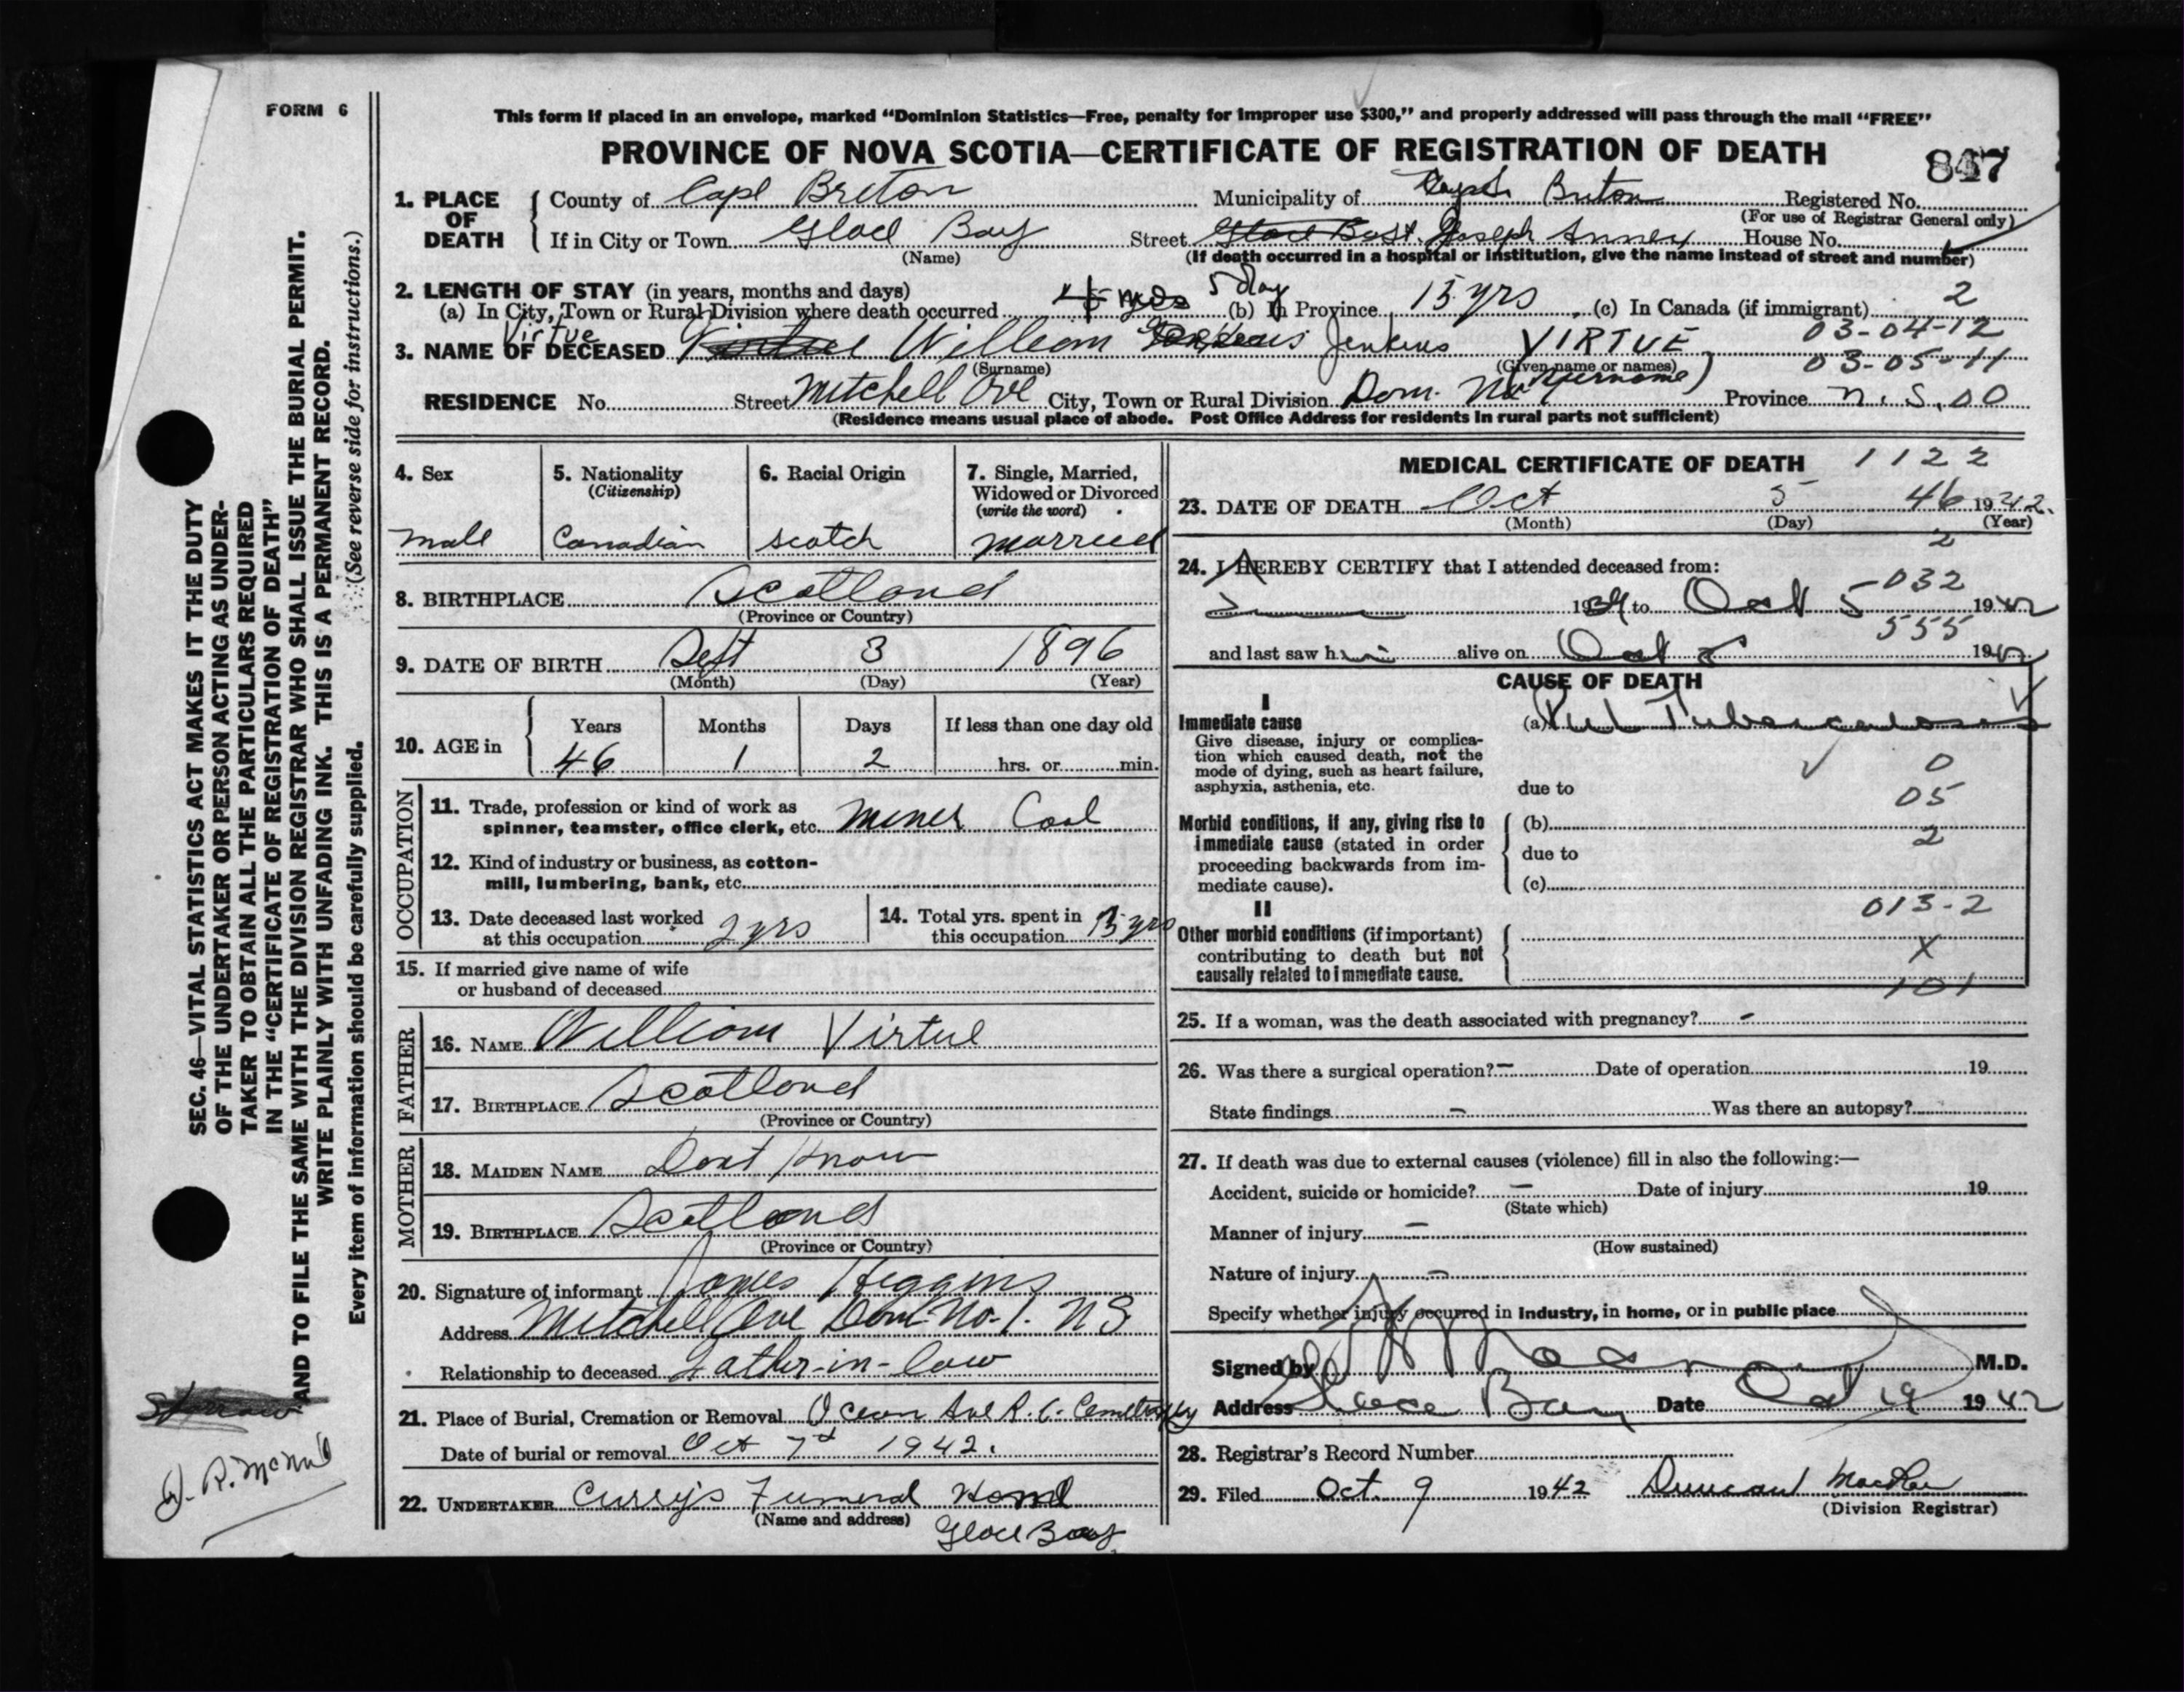 FORM 6
This form if placed in an envelope, marked “Dominion Statistics—Free, penalty for improper use $300,” and properly addressed will pass through the mail “FREE”
PROVINCE OF NOVA SCOTIA—CERTIFICATE OF REGISTRATION OF DEATH
847
1. PLACE OF DEATH
County of Cape Breton Municipality of Cape Breton Registered No.
(For use of Registrar General only)
If in City or Town Glace Bay Street St. Joseph Annex House No.
(Name) (If death occurred in a hospital or institution, give the name instead of street and number)
2. LENGTH OF STAY (in years, months and days)
(a) In City, Town or Rural Division where death occurred 5 day (b) In Province 15 yrs (c) In Canada (if immigrant) 2
Virtue 03-04-12
3. NAME OF DECEASED William Jenkins VIRTUE 03-05-11
(Surname) (Given name or names) (Surname)
RESIDENCE No. Street Mitchell Ave City, Town or Rural Division Dom. No 1 Province N. S. 00
(Residence means usual place of abode. Post Office Address for residents in rural parts not sufficient)
4. Sex
male
5. Nationality
(Citizenship)
Canadian
6. Racial Origin
Scotch
7. Single, Married,
Widowed or Divorced
(write the word)
married
8. BIRTHPLACE Scotland
(Province or Country)
9. DATE OF BIRTH Sept 3 1896
(Month) (Day) (Year)
10. AGE in
Years Months Days If less than one day old
46 1 2 hrs. or min.
OCCUPATION
11. Trade, profession or kind of work as
spinner, teamster, office clerk, etc. Miner Coal
12. Kind of industry or business, as cotton-
mill, lumbering, bank, etc.
13. Date deceased last worked
at this occupation 2 yrs
14. Total yrs. spent in
this occupation 13 yrs
15. If married give name of wife
or husband of deceased
FATHER
16. NAME William Virtue
17. BIRTHPLACE Scotland
(Province or Country)
MOTHER
18. MAIDEN NAME Dont Know
19. BIRTHPLACE Scotland
(Province or Country)
20. Signature of informant James Higgins
Address Mitchell Ave Dom No. 1. N S
Relationship to deceased Father-in-law
21. Place of Burial, Cremation or Removal Ocean Ave R. C. Cemetery
Date of burial or removal Oct 7d 1942.
22. UNDERTAKER Curry's Funeral Home
(Name and address)
Glace Bay
MEDICAL CERTIFICATE OF DEATH 1122
23. DATE OF DEATH Oct 5 46 1942.
(Month) (Day) (Year)
2
24. I HEREBY CERTIFY that I attended deceased from:
032
1939 to Oct 5 1942
555
and last saw him alive on Oct 5 1942
CAUSE OF DEATH
I
Immediate cause
Give disease, injury or complica-
tion which caused death, not the
mode of dying, such as heart failure,
asphyxia, asthenia, etc.
(a) Pul Tuberculosis
0
due to
05
Morbid conditions, if any, giving rise to
immediate cause (stated in order
proceeding backwards from im-
mediate cause).
(b)
2
due to
(c)
013-2
II
Other morbid conditions (if important)
contributing to death but not
causally related to immediate cause.
X
101
25. If a woman, was the death associated with pregnancy? -
26. Was there a surgical operation? - Date of operation 19
State findings - Was there an autopsy?
27. If death was due to external causes (violence) fill in also the following:—
Accident, suicide or homicide? - Date of injury 19
(State which)
Manner of injury -
(How sustained)
Nature of injury -
Specify whether injury occurred in industry, in home, or in public place
Signed by M.D.
Address Glace Bay Date Oct 19 1942
28. Registrar's Record Number
29. Filed Oct. 9 1942 Duncan MacRae
(Division Registrar)
SEC. 46—VITAL STATISTICS ACT MAKES IT THE DUTY
OF THE UNDERTAKER OR PERSON ACTING AS UNDER-
TAKER TO OBTAIN ALL THE PARTICULARS REQUIRED
IN THE “CERTIFICATE OF REGISTRATION OF DEATH”
AND TO FILE THE SAME WITH THE DIVISION REGISTRAR WHO SHALL ISSUE THE BURIAL PERMIT.
WRITE PLAINLY WITH UNFADING INK. THIS IS A PERMANENT RECORD.
Every item of information should be carefully supplied. (See reverse side for instructions.)